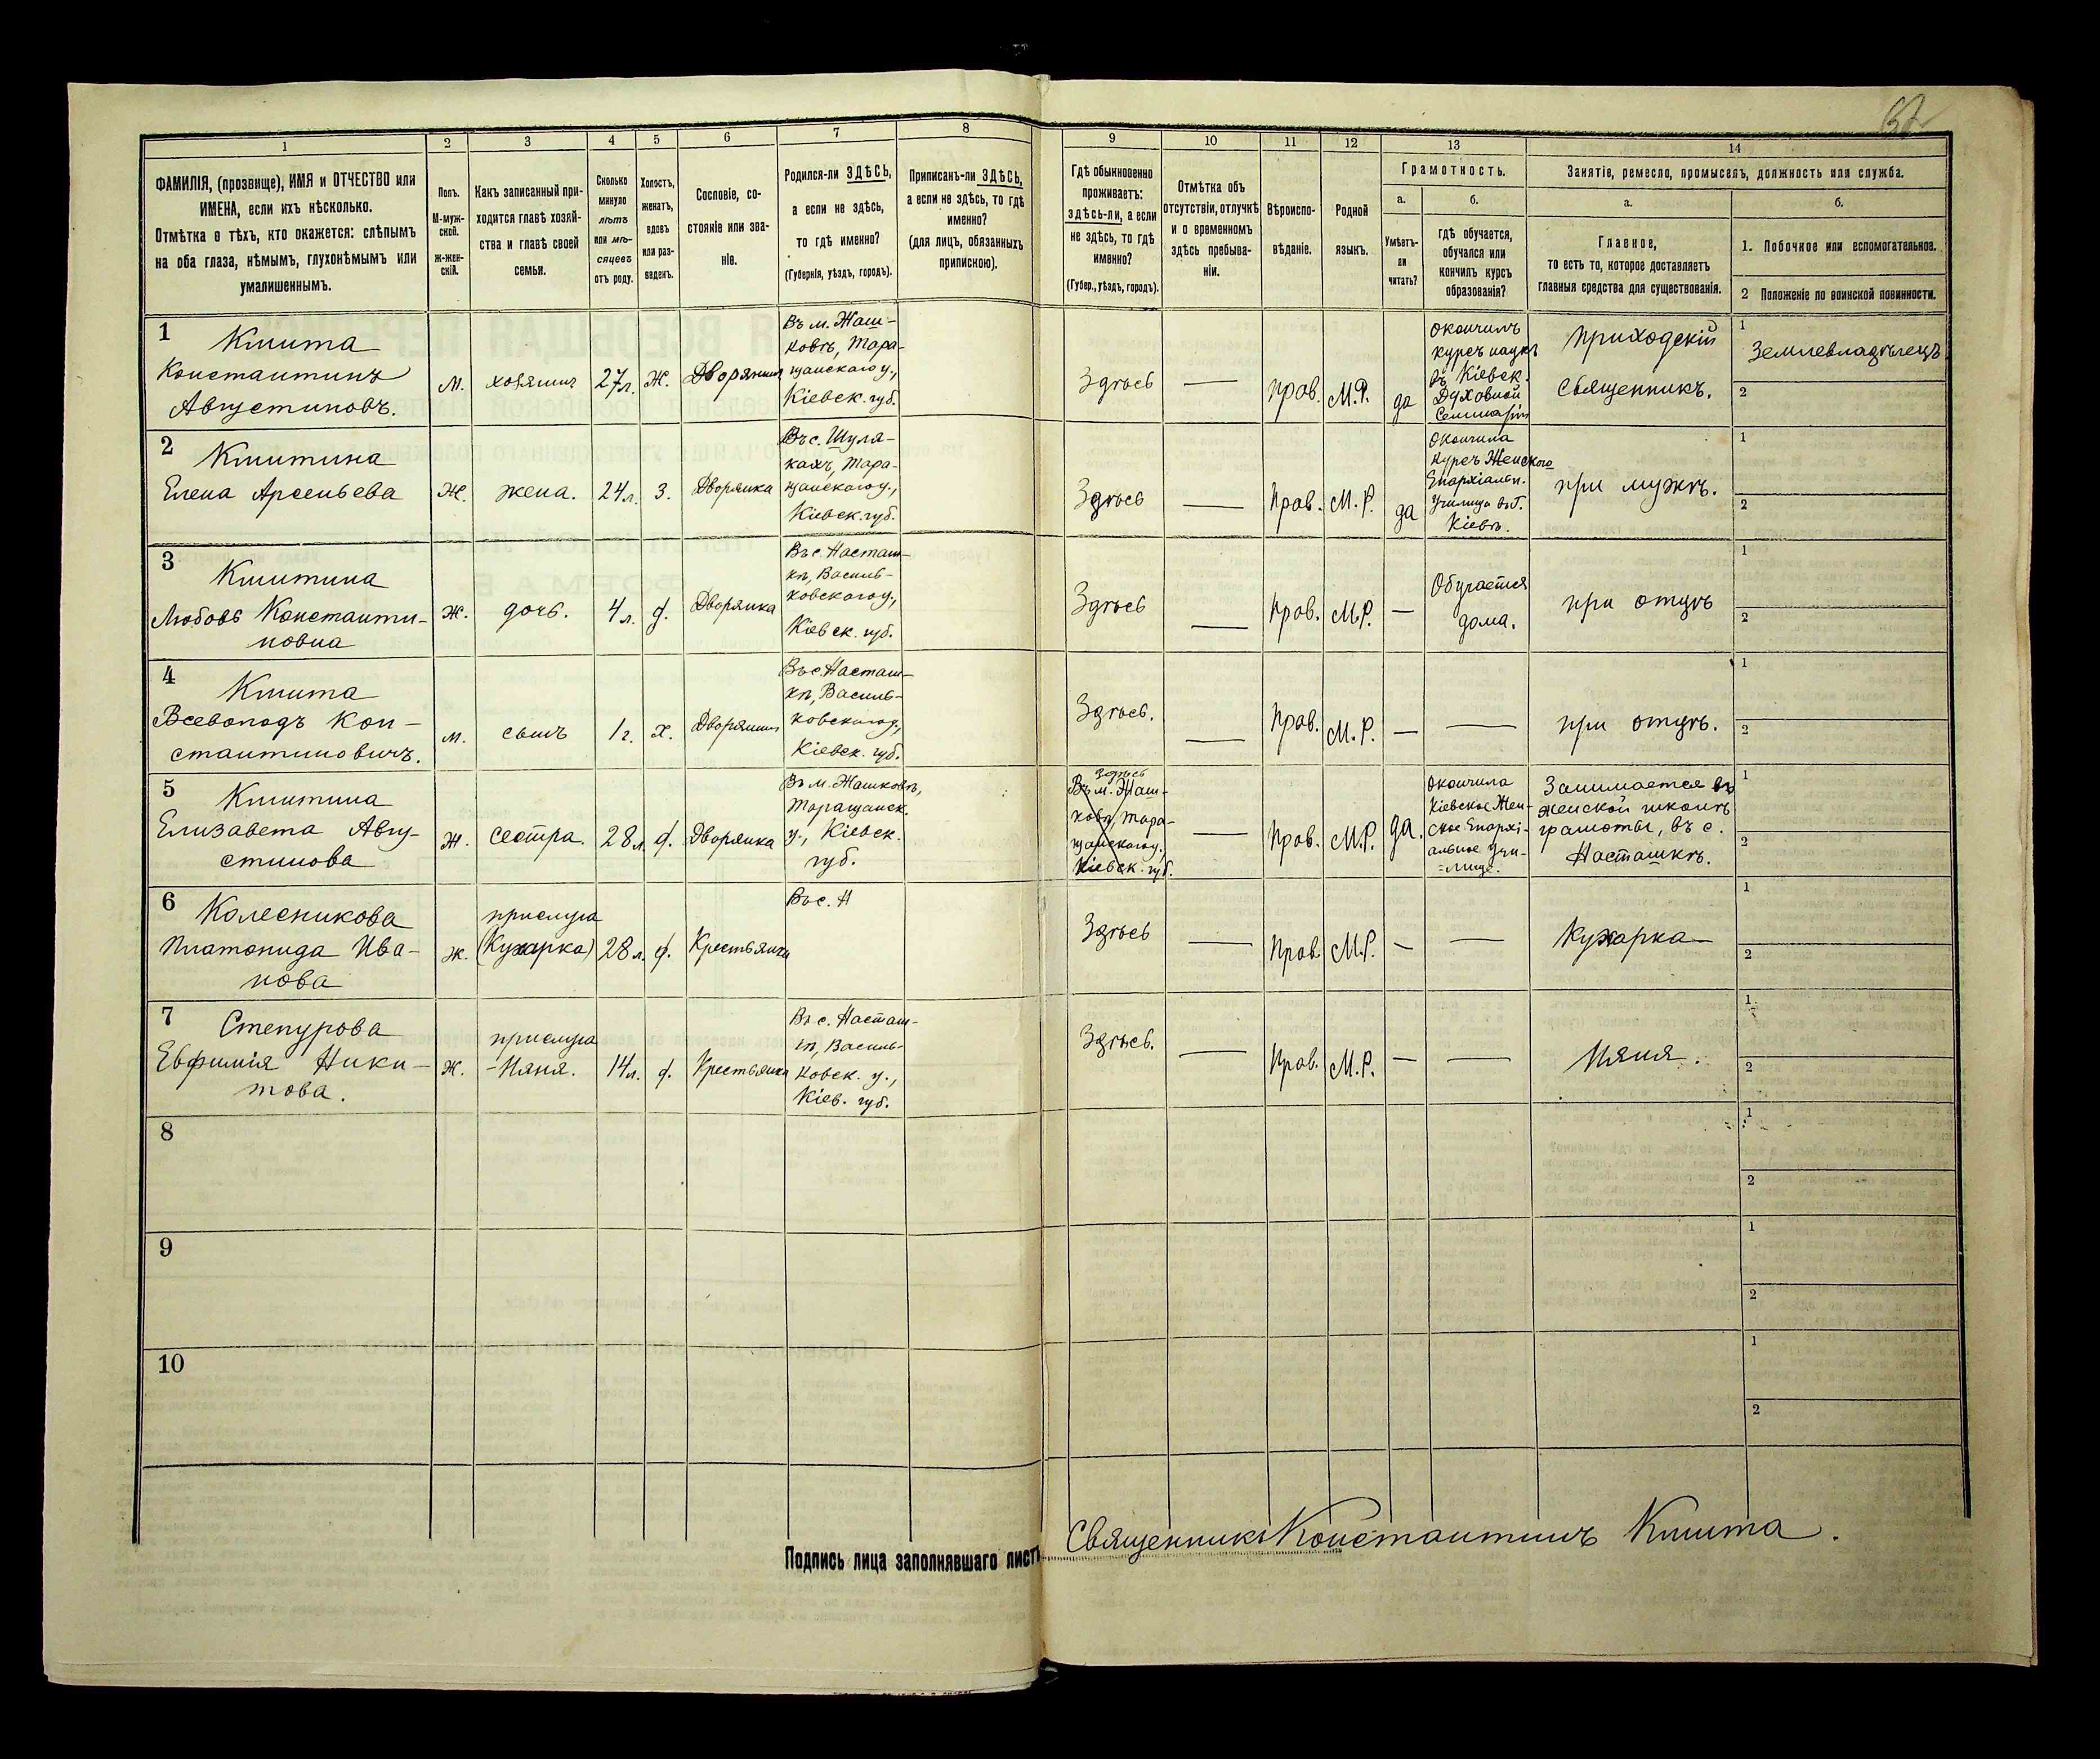 1
2
3
4
5
6
7
8
9
10
11
12
13
14
ФАМИЛІЯ, (прозвище), ИМЯ и ОТЧЕСТВО или
ИМЕНА, если ихъ нѣсколько.
Отмѣтка о тѣхъ, кто окажется: слѣпымъ
на оба глаза, нѣмымъ, глухонѣмымъ или
умалишеннымъ.
Полъ.
М-муж-
ской.
ж-жен-
скій.
Какъ записанный при-
ходится главѣ хозяй-
ства и главѣ своей
семьи.
Сколько
минуло
лѣтъ
или мѣ-
сяцевъ
отъ роду.
Холостъ,
женатъ,
вдовъ
или раз-
веденъ.
Сословіе, со-
стояніе или зва-
ніе.
Родился-ли ЗДѢСЬ,
а если не здѣсь,
то гдѣ именно?
(Губернія, уѣздъ, городъ).
Приписанъ-ли ЗДѢСЬ,
а если не здѣсь, то гдѣ
именно?
(для лицъ, обязанныхъ
припискою).
Гдѣ обыкновенно
проживаетъ:
здѣсь-ли, а если
не здѣсь, то гдѣ
именно?
(Губер., уѣздъ, городъ).
Отмѣтка объ
отсутствіи, отлучкѣ
и о временномъ
здѣсь пребыва-
ніи.
Вѣроиспо-
вѣданіе.
Родной
языкъ.
Грамотность.
а.
Умѣетъ-
ли
читать?
б.
гдѣ обучается,
обучался или
кончилъ курсъ
образованія?
Занятіе, ремесло, промыселъ, должность или служба.
а.
Главное,
то есть то, которое доставляетъ
главныя средства для существованія.
б.
1. Побочное или вспомогательное.
2 Положеніе по воинской повинности.
1
Кмита
Константинъ
Августиновъ.
м.
хозяинъ
27 л.
Ж.
Дворянин
Въ м. Жаш-
ковѣ, Тара-
щанскаго у.,
Кіевск. губ.
Здѣсь
—
прав.
М.Р.
да
окончилъ
курсъ наукъ
въ Кіевск.
Духовной
Семинаріи
приходскій
священникъ.
1
Землевладѣлецъ
2
2
Кмитина
Елена Арсеньева
Ж.
жена.
24 л.
З.
Дворянка
Въ с. Шуля-
кахъ, Тара-
щанскаго у.,
Кіевск. губ.
Здѣсь
—
Прав.
М.Р.
да
Окончила
курсъ Женскаго
Епархіальн.
училища въ г.
Кіевѣ.
при мужѣ.
1
2
3
Кмитина
Любовь Константи-
новна
Ж.
дочь.
4 л.
д.
Дворянка
Въ с. Насташ-
кѣ, Василь-
ковскаго у.,
Кіевск. губ.
Здѣсь
—
Прав.
М.Р.
—
Обучается
дома.
при отцѣ
1
2
4
Кмита
Всеволодъ Кон-
стантиновичъ.
м.
сынъ
1 г.
Х.
Дворянин
Въ с. Насташ-
кѣ, Василь-
ковскаго у.,
Кіевск. губ.
Здѣсь.
—
Прав.
М.Р.
—
—
при отцѣ.
1
2
5
Кмитина
Елизавета Авгу-
стинова
Ж.
сестра.
28 л.
д.
Дворянка
Въ м. Жашковѣ,
Таращанск.
у., Кіевск.
губ.
здѣсь
Въ м. Жаш-
ковѣ, Тара-
щанскаго у.,
Кіевск. губ.
—
Прав.
М.Р.
да.
Окончила
Кіевское Жен-
ское Епархі-
альное учи-
-лище.
Занимается въ
женской школѣ
грамоты, въ с.
Насташкѣ.
1
2
6
Колесникова
Платонида Ива-
нова
ж.
прислуга
(Кухарка)
28 л.
д.
Крестьянка
Въ с. Н
Здѣсь
—
Прав
М.Р.
—
—
Кухарка
1
2
7
Степурова
Евфимія Ники-
това.
Ж.
прислуга
-Няня.
14 л.
д.
Крестьянка
Въ с. Насташ-
кѣ, Василь-
ковск. у.,
Кіев. губ.
Здѣсь.
—
Прав.
М.Р.
—
—
Няня.
1
2
8
1
2
9
1
2
10
1
2
Подпись лица заполнявшаго листъ
Священникъ Константинъ Кмита.